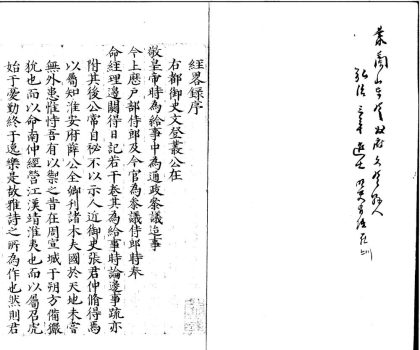 弘治三年進士
經畧録序
右都御史文登叢公在
敬皇帝時為給事中為通政叅議迨事
今上歷户部侍郎及今官為叅議侍郎時奉
命經理邊關得日記若干卷其為給事時論邊事疏亦
附其後公常自秘不以示人近御史張君仲脩得焉
以屬知淮安府薛公全卿利諸木夫國於天地未嘗
無外患惟恃吾有以禦之昔在周宣城于朔方備玁
狁也而以命南仲經營江漢靖淮夷也而以屬召虎
始于憂勤終于逸樂是故雅詩之所為作也然則君